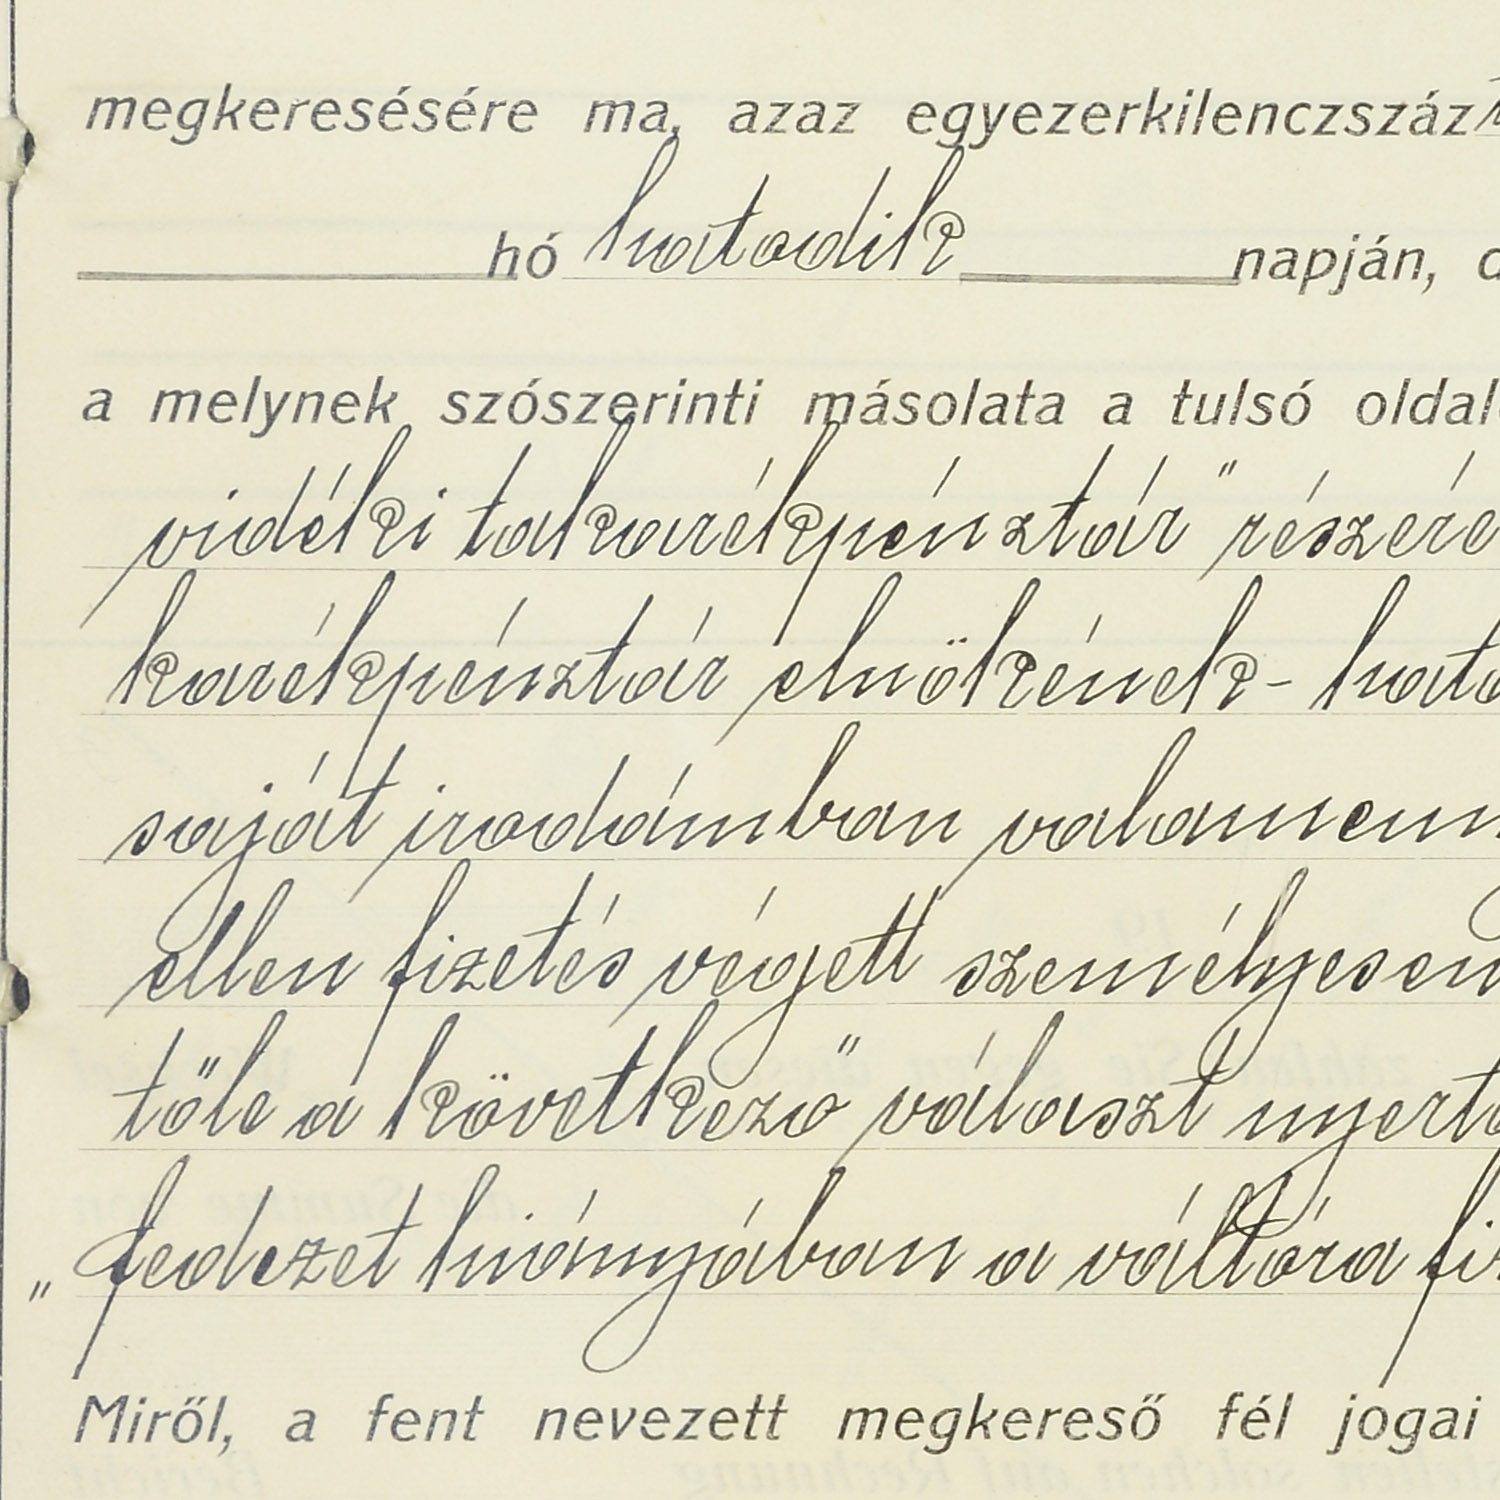 megkeresésére ma, azaz egyezerkilenczszáz
hó hatodik napján,
a melynek szószerinti másolata a tulsó oldal
vidéki takarékpénztár" részére
karékpénztár elnökének - hato
saját irodámban valamenn
ellen fizetés végett személyesen
tőle a következő választ nyert
„fedezet hiányában a váltóra fi
Miről, a fent nevezett megkereső fél jogai